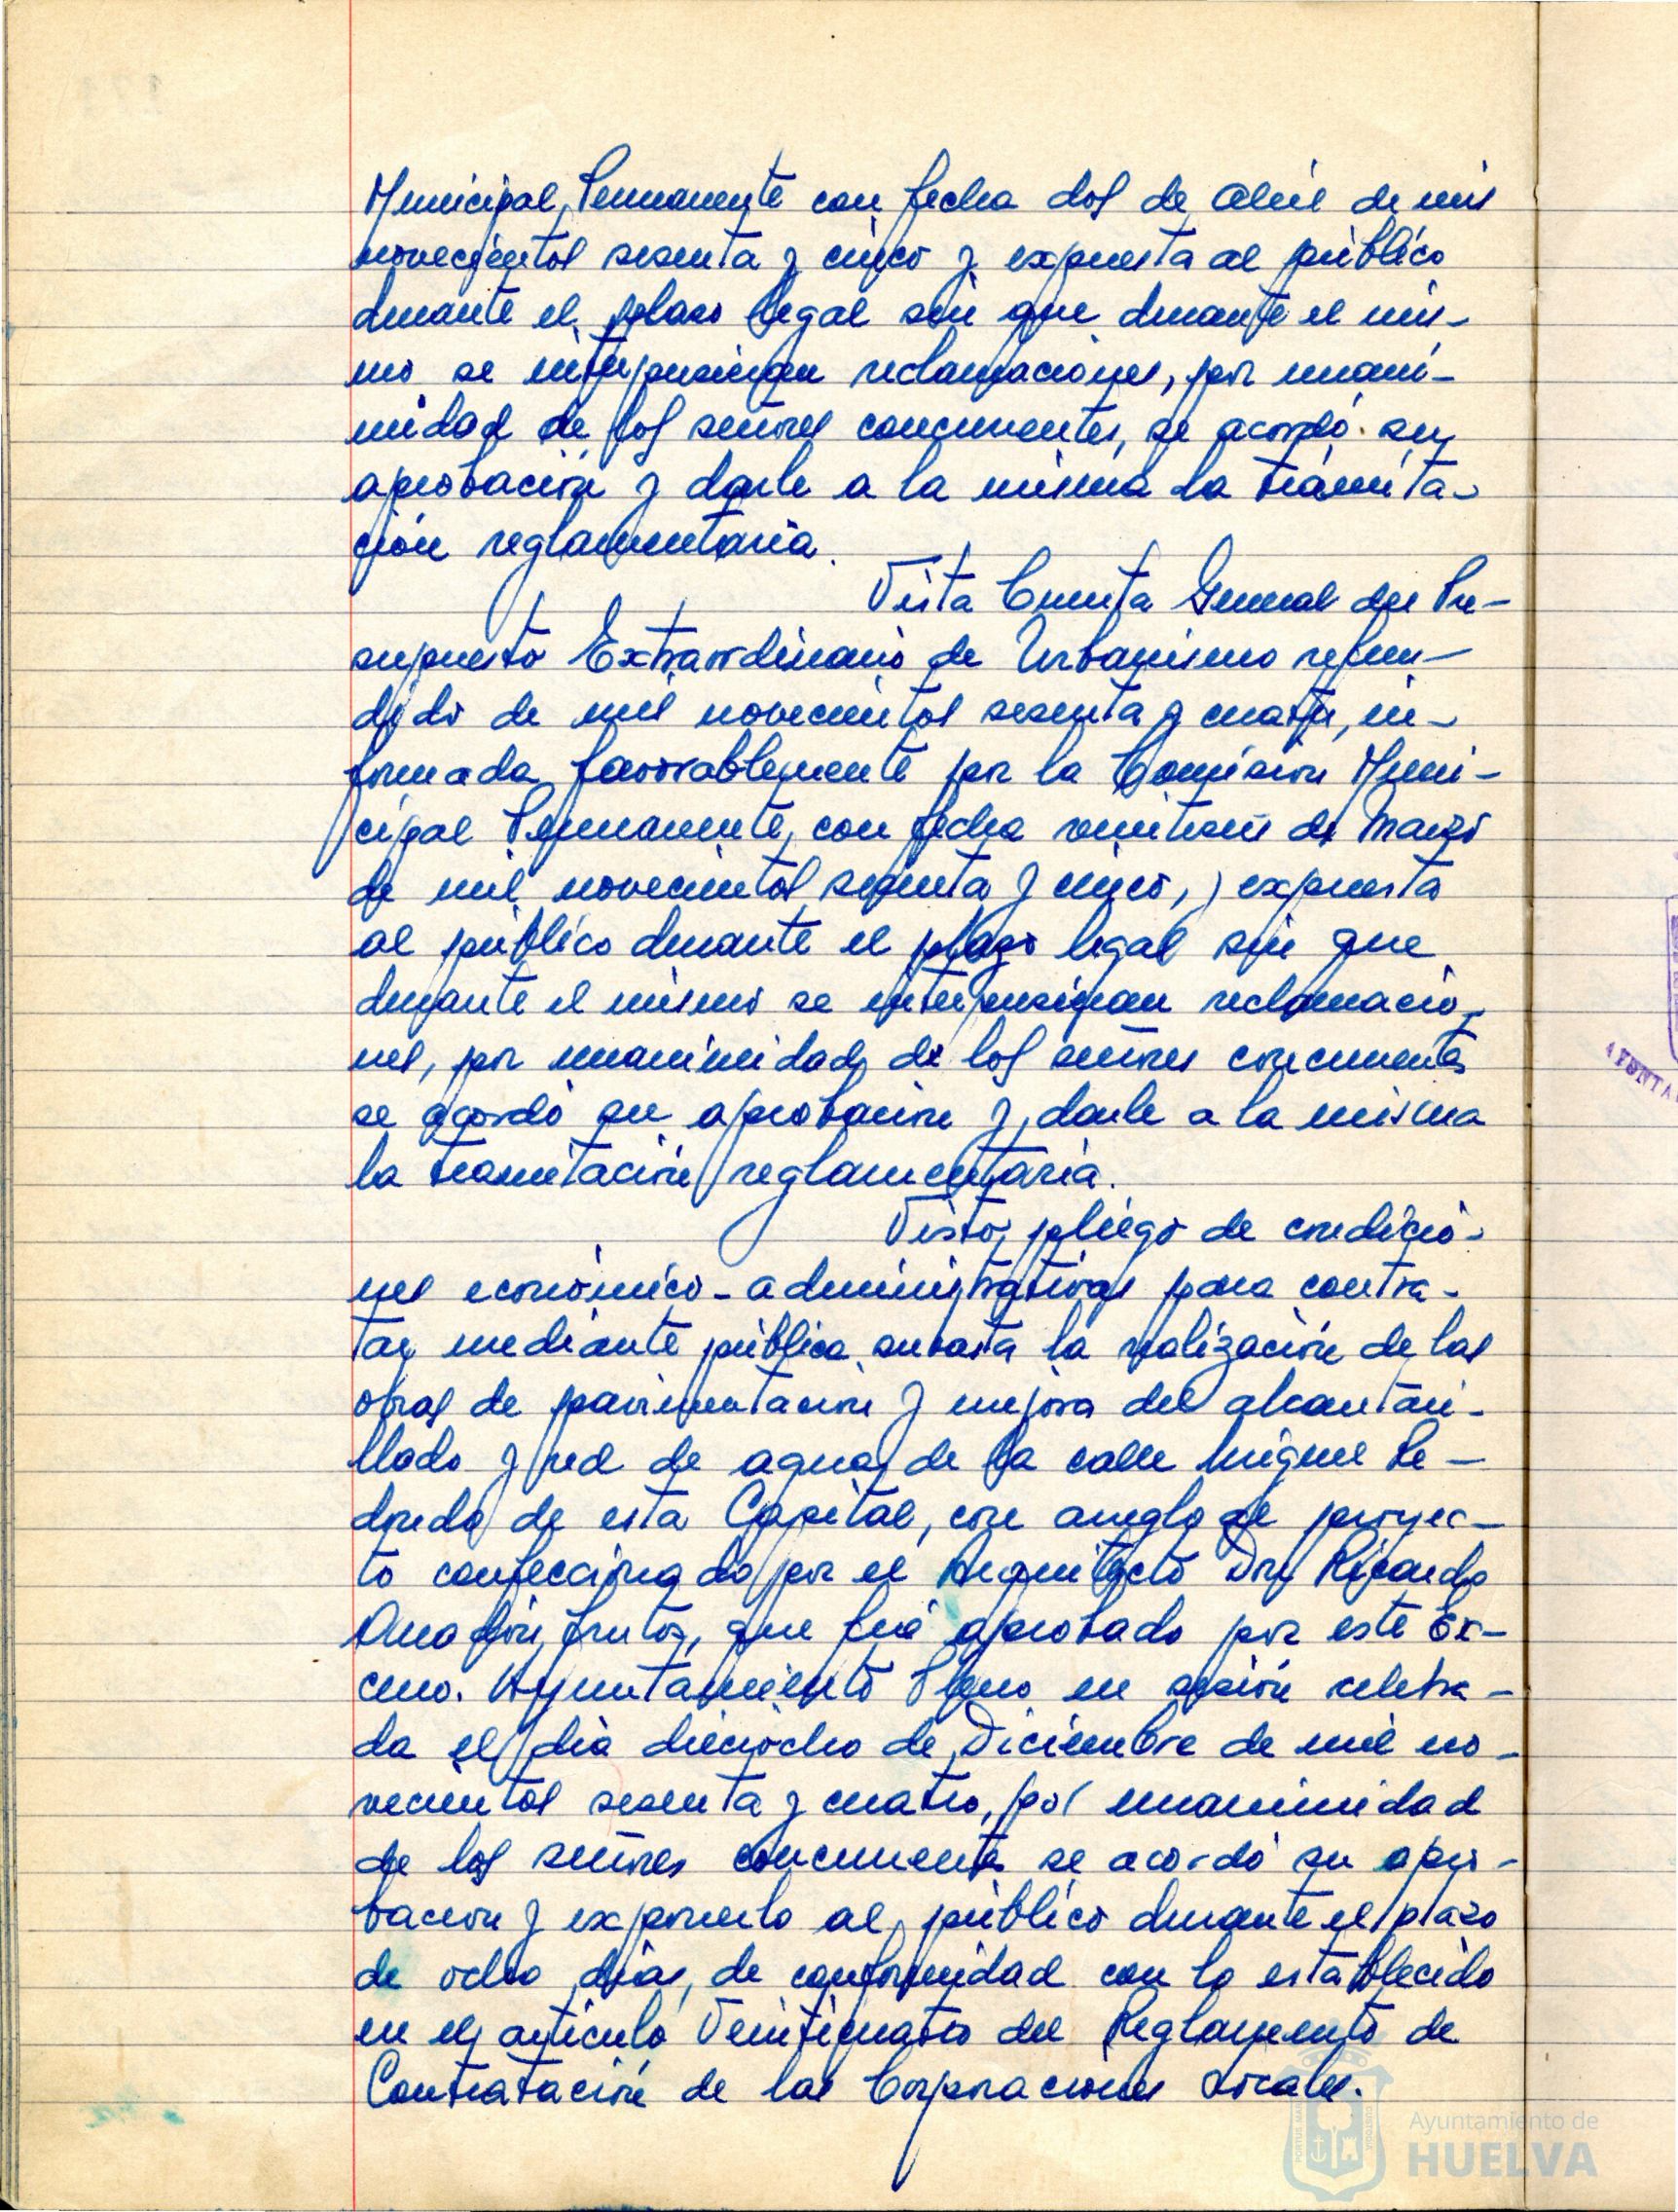 Municipal Permanente con fecha dos de Abril de mil
novecientos sesenta y cinco y expuesta al público
durante el plazo legal sin que durante el mis-
mo se interpusieran reclamaciones, por unani-
midad de los señores concurrentes, se acordó su
aprobación y darle a la misma la tramita-
ción reglamentaria.
Vista Cuenta General del Pre-
supuesto Extraordinario de Urbanismo refun-
dido de mil novecientos sesenta y cuatro, in-
formada favorablemente por la Comisión Muni-
cipal Permanente, con fecha veintiseis de Marzo
de mil novecientos sesenta y cinco, y expuesta
al público durante el plazo legal sin que
durante el mismo se interpusieran reclamacio-
nes, por unanimidad de los señores concurrentes
se acordó su aprobación y darle a la misma
la tramitación reglamentaria.
Visto pliego de condicio-
nes económico-administrativas para contra-
tar mediante pública subasta la realización de las
obras de pavimentación y mejora del alcantari-
llado y red de aguas de la calle Miguel Re-
dondo de esta Capital, con arreglo al proyec-
to confeccionado por el Arquitecto Don Ricardo
Anadón Frutos, que fué aprobado por este Ex-
cmo. Ayuntamiento Pleno en sesión celebra-
da el día dieciocho de Diciembre de mil no-
vecientos sesenta y cuatro, por unanimidad
de los señores concurrentes se acordó su apro-
bación y exponerlo al público durante el plazo
de ocho días, de conformidad con lo establecido
en el artículo Veinticuatro del Reglamento de
Contratación de las Corporaciones Locales.
Ayuntamiento de
HUELVA